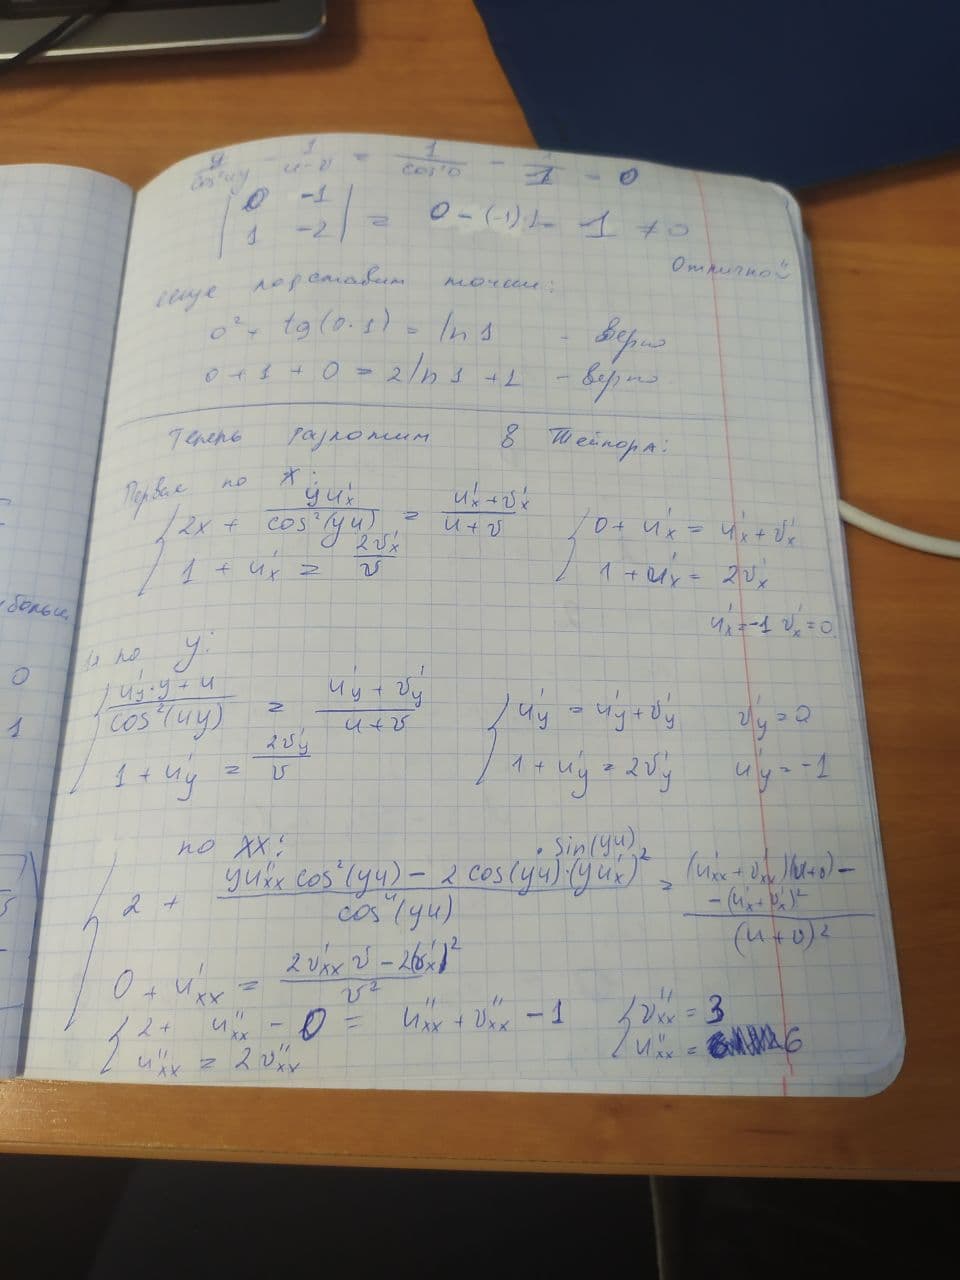 y/cos²uy - 1/(u-v) = 1/cos²0 - 1/1 = 0
|0 -1; 1 -2| = 0 - (-1)·1 = 1 ≠ 0
Отличной
еще подставим точки:
0² + tg(0·1) = ln 1 - верно
0 + 1 + 0 = 2 ln 1 + 1 - верно
Теперь разложим в Тейлора:
Первая по x:
{ 2x + yu'x/cos²(yu) = (u'x + v'x)/(u+v) { 0 + u'x = u'x + v'x
1 + u'x = 2v'x/v 1 + u'x = 2v'x
u'x = -1 v'x = 0
по y:
{ (u'y·y + u)/cos²(uy) = (u'y + v'y)/(u+v) { u'y = u'y + v'y v'y = 0
1 + u'y = 2v'y/v 1 + u'y = 2v'y u'y = -1
по xx:
{ 2 + (yu''xx cos²(yu) - 2cos(yu)·(yu'x)²·sin(yu))/cos⁴(yu) = ((u''xx + v''xx)(u+v) - (u'x + v'x)²)/(u+v)²
0 + u'xx = (2v''xx v - 2(v'x)²)/v²
{ 2 + u''xx - 0 = u''xx + v''xx - 1 { v''xx = 3
u''xx = 2v''xx u''xx = 6
больш
0
1